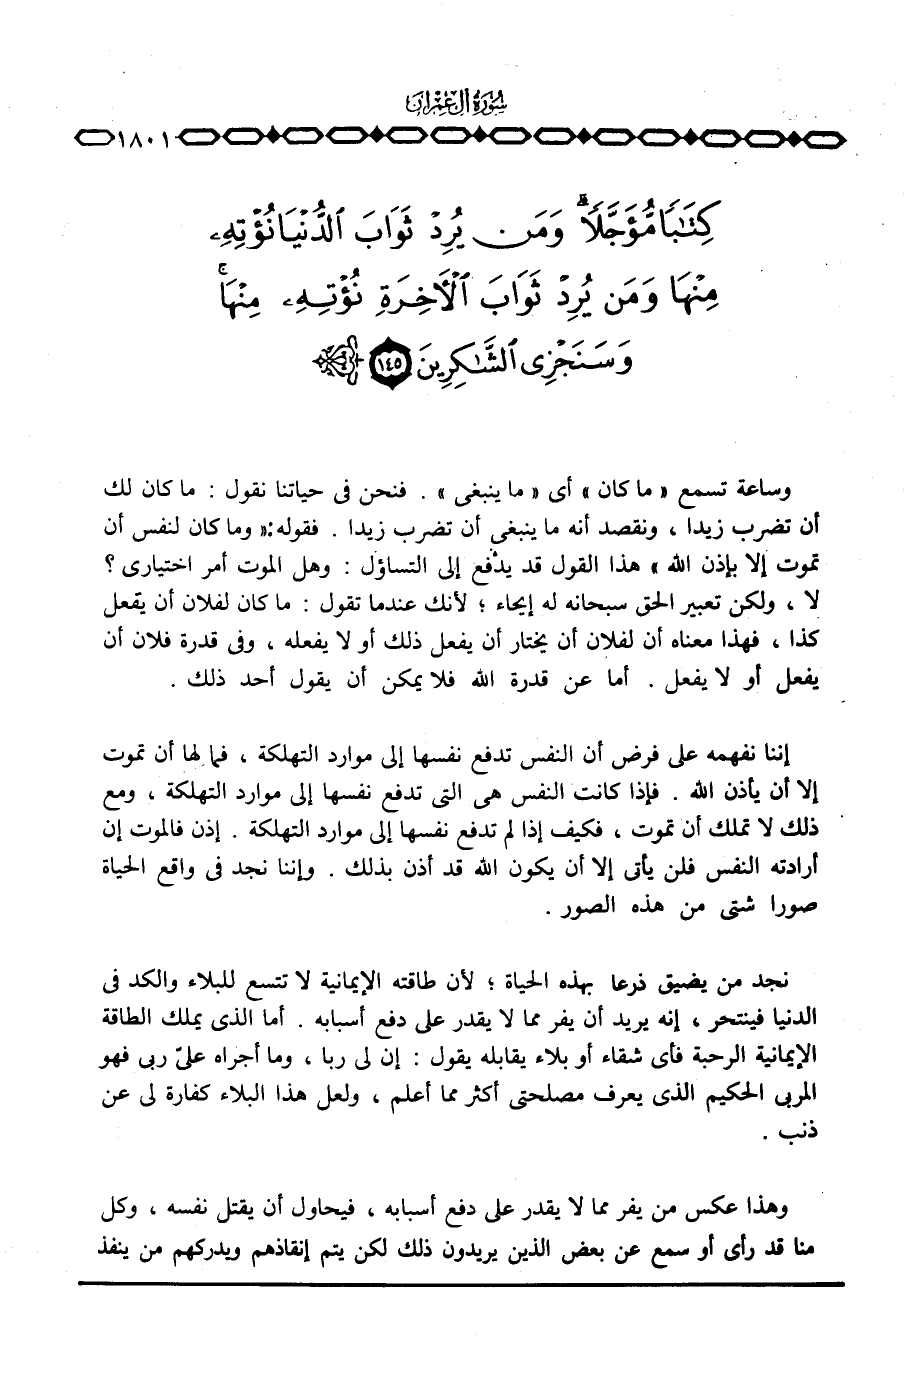 سُورَةُ آلِ عِمْرَانَ
١٨٠١
كِتَٰبًا مُّؤَجَّلًا ۗ وَمَن يُرِدْ ثَوَابَ ٱلدُّنْيَا نُؤْتِهِۦ
مِنْهَا وَمَن يُرِدْ ثَوَابَ ٱلْأَخِرَةِ نُؤْتِهِۦ مِنْهَا ۚ
وَسَنَجْزِى ٱلشَّٰكِرِينَ ١٤٥
وساعة تسمع « ما كان » أى « ما ينبغى » . فنحن فى حياتنا نقول : ما كان لك
أن تضرب زيدا ، ونقصد أنه ما ينبغى أن تضرب زيدا . فقوله : « وما كان لنفس أن
تموت إلا بإذن الله » هذا القول قد يدْفع إلى التساؤل : وهل الموت أمر اختيارى ؟
لا ، ولكن تعبير الحق سبحانه له إيحاء ؛ لأنك عندما تقول : ما كان لفلان أن يفعل
كذا ، فهذا معناه أن لفلان أن يختار أن يفعل ذلك أو لا يفعله ، وفى قدرة فلان أن
يفعل أو لا يفعل . أما عن قدرة الله فلا يمكن أن يقول أحد ذلك .
إننا نفهمه على فرض أن النفس تدفع نفسها إلى موارد التهلكة ، فما لها أن تموت
إلا أن يأذن الله . فإذا كانت النفس هى التى تدفع نفسها إلى موارد التهلكة ، ومع
ذلك لا تملك أن تموت ، فكيف إذا لم تدفع نفسها إلى موارد التهلكة . إذن فالموت إن
أرادته النفس فلن يأتى إلا أن يكون الله قد أذن بذلك . وإننا نجد فى واقع الحياة
صورا شتى من هذه الصور .
نجد من يضيق ذرعا بهذه الحياة ؛ لأن طاقته الإيمانية لا تتسع للبلاء والكد فى
الدنيا فينتحر ، إنه يريد أن يفر مما لا يقدر على دفع أسبابه . أما الذى يملك الطاقة
الإيمانية الرحبة فأى شقاء أو بلاء يقابله يقول : إن لى ربا ، وما أجراه علىّ ربى فهو
المربى الحكيم الذى يعرف مصلحتى أكثر مما أعلم ، ولعل هذا البلاء كفارة لى عن
ذنب .
وهذا عكس من يفر مما لا يقدر على دفع أسبابه ، فيحاول أن يقتل نفسه ، وكل
منا قد رأى أو سمع عن بعض الذين يريدون ذلك لكن يتم إنقاذهم ويدركهم من ينفذ